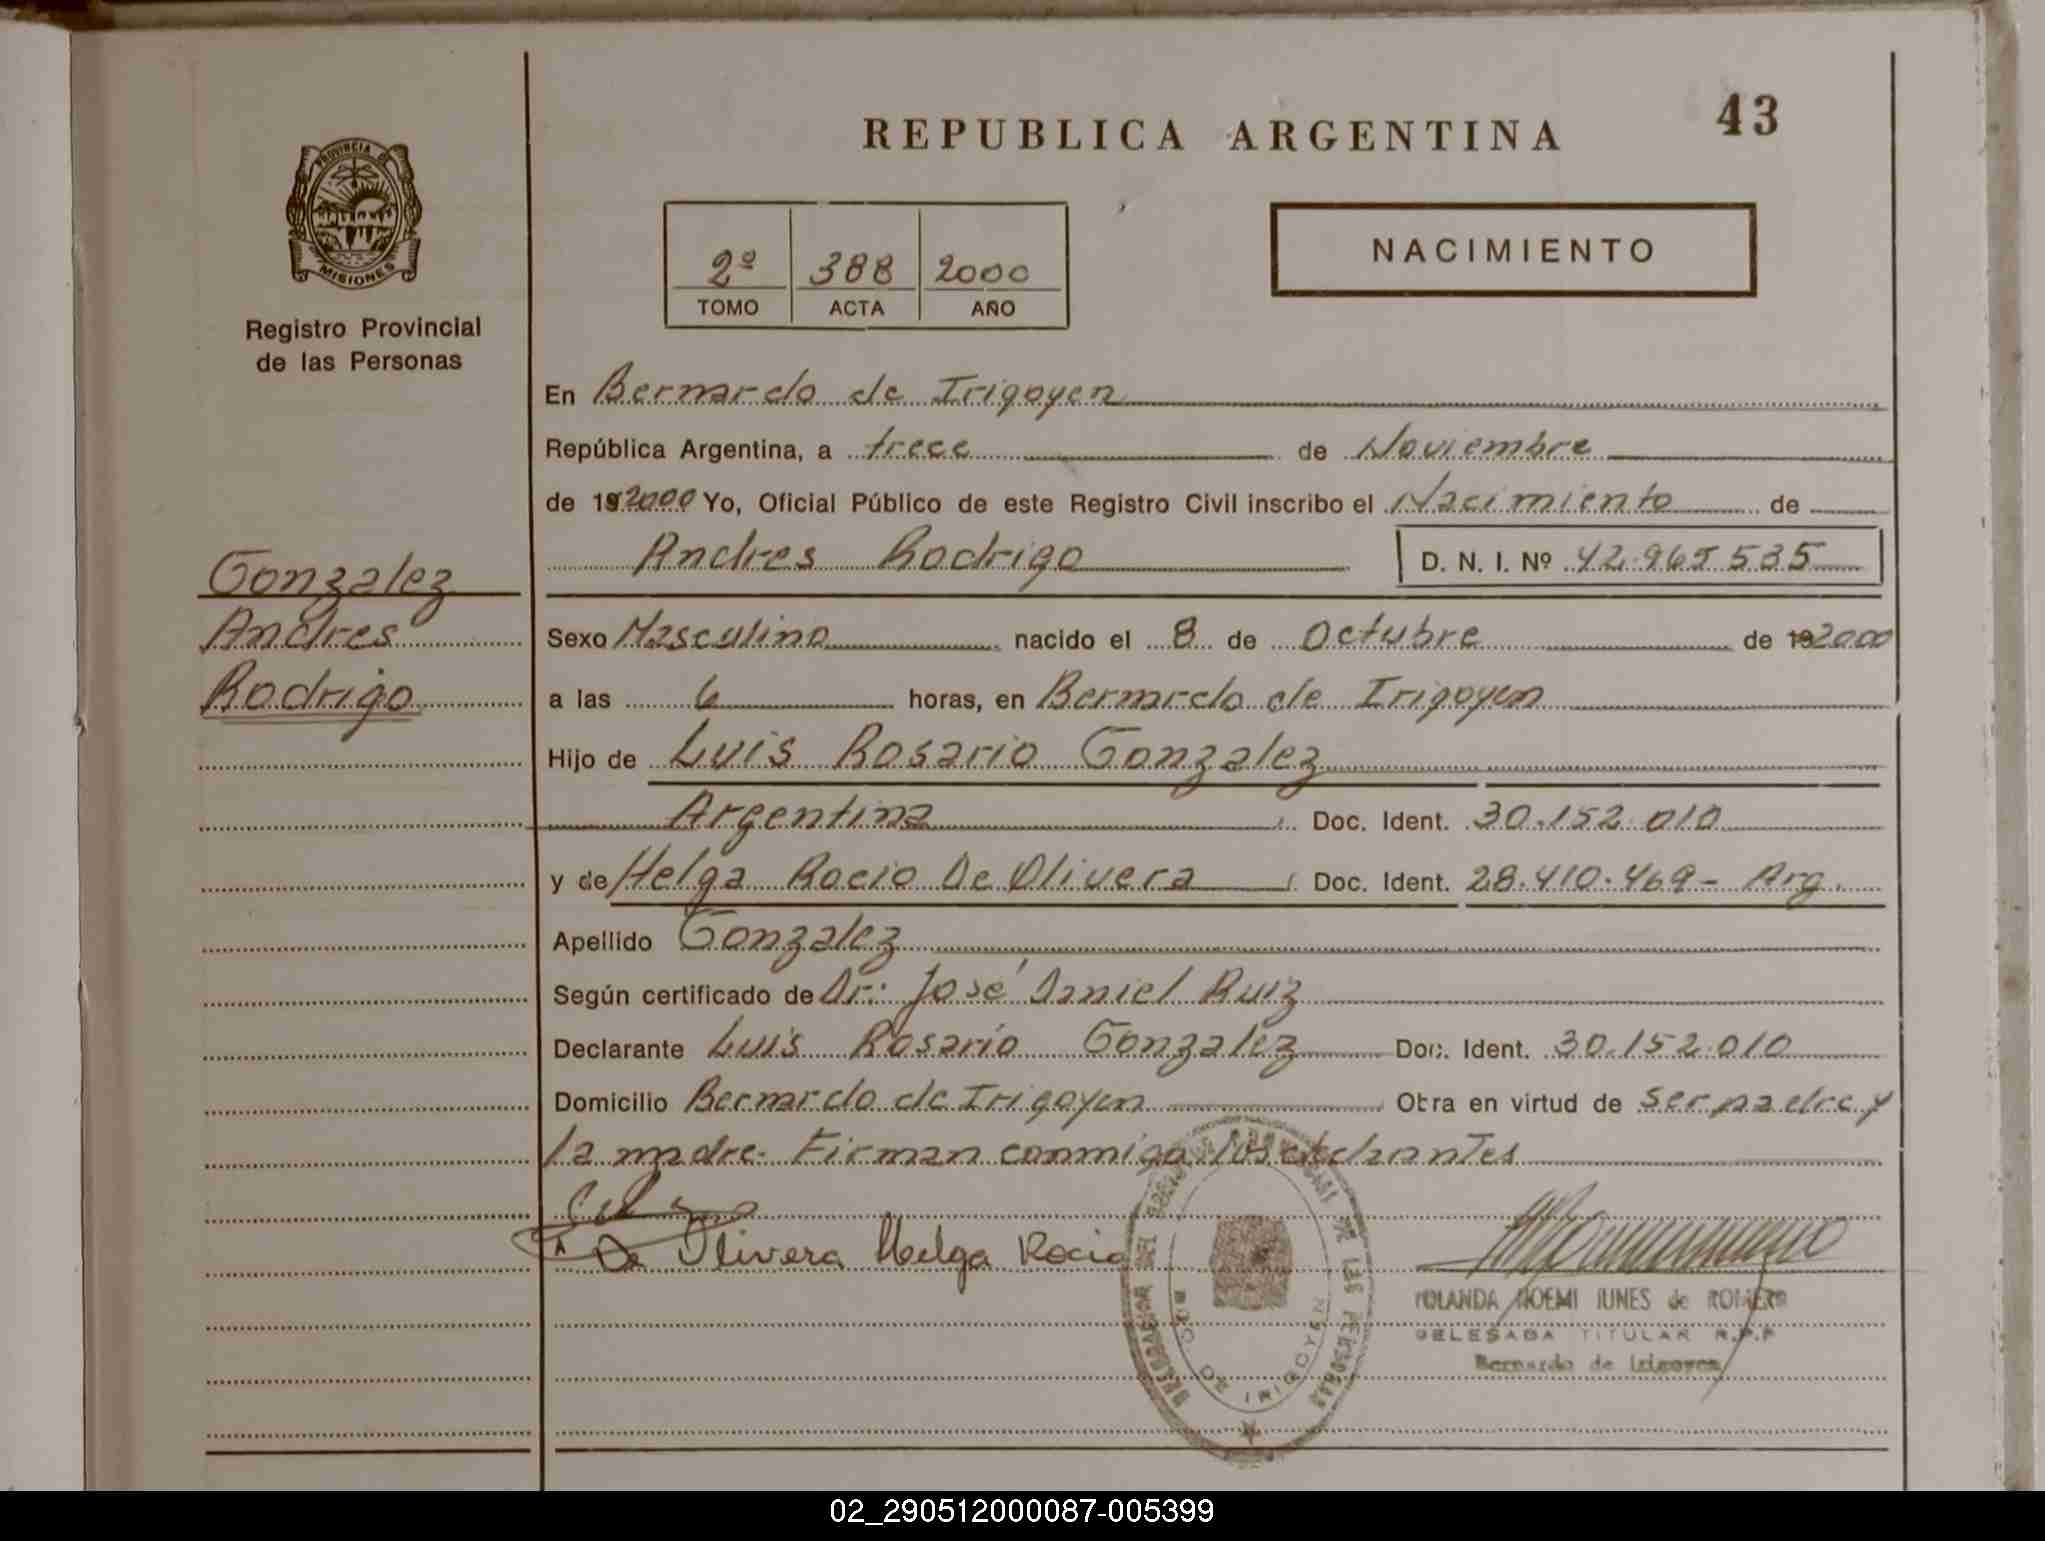 REPUBLICA ARGENTINA
43
PROVINCIA DE
MISIONES
Registro Provincial
de las Personas
2º 388 2000
TOMO ACTA AÑO
NACIMIENTO
En Bernardo de Irigoyen
República Argentina, a trece de Noviembre
de 192000 Yo, Oficial Público de este Registro Civil inscribo el Nacimiento de
Andres Rodrigo D. N. I. Nº 42.965.535
Gonzalez
Andres
Rodrigo
Sexo Masculino nacido el 8 de Octubre de 192000
a las 6 horas, en Bernardo de Irigoyen
Hijo de Luis Rosario Gonzalez
Argentina Doc. Ident. 30.152.010
y de Helga Rocio De Olivera Doc. Ident. 28.410.469- Arg.
Apellido Gonzalez
Según certificado de Dr: José Daniel Ruiz
Declarante Luis Rosario Gonzalez Doc. Ident. 30.152.010
Domicilio Bernardo de Irigoyen Obra en virtud de ser padre y
la madre. Firman conmigo los
De Olivera Helga Rocio
YOLANDA NOEMI IUNES de ROMERO
DELEGADA TITULAR R.P.P
Bernardo de Irigoyen
DE LAS PERSONAS
BDO. DE IRIGOYEN
02_290512000087-005399